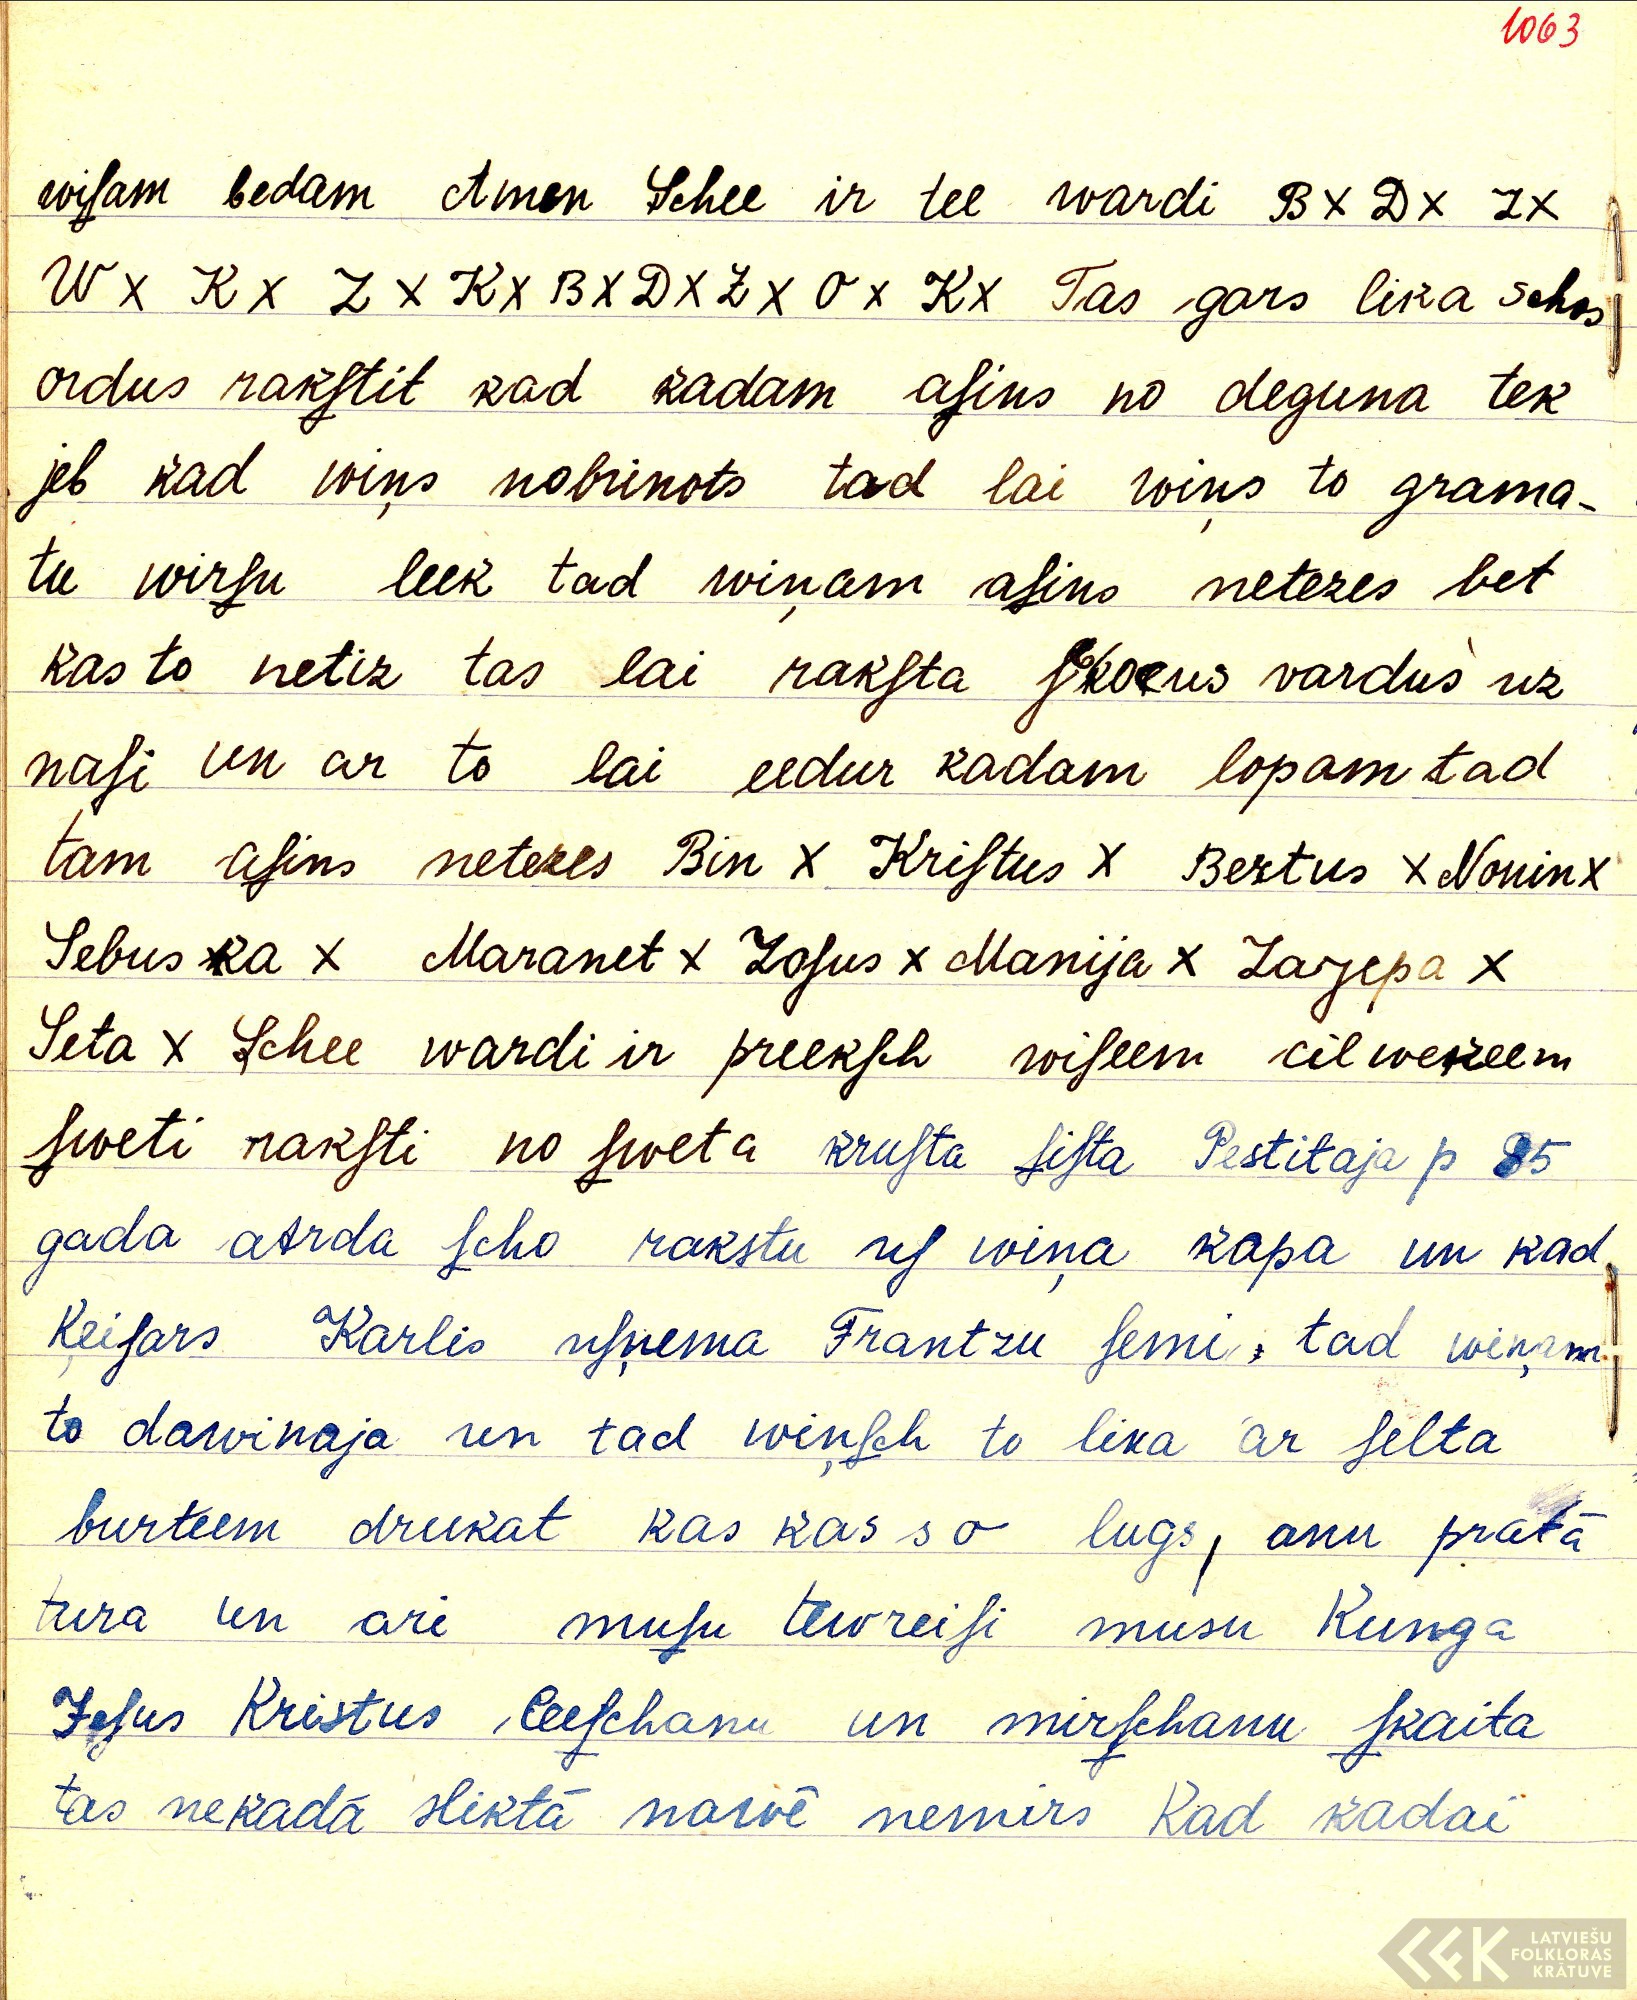 1063
wiſam bedam Amen Schee ir tee wardi B x D x Z x
W x K x Z x K x B x D x Z x O x K x Tas gars lika schos
ordus rakſtit kad kadam aſins no deguna tek
jeb kad wiņs nobrinots tad lai wiņs to grama-
tu wirſu leek tad wiņam aſins netezes bet
kas to netiz tas lai rakſta vardus uz
naſi un ar to lai eedur kadam lopam tad
tam aſins netezes Bin x Kriſtus x Beztus x Nonin x
Sebus ka x Maranet x Zoſus x Manija x x
Seta x Schee wardi ir preekſch wiſeem cilwekeem
ſweti rakſti no ſweta kruſta ſiſta Pestitaja p 85
gada atrda ſcho rakstu uſ wiņa kapa un kad
Ķeiſars Karlis uſņema Frantzu ſemi, tad wiņam
to dawinaja un tad wiņſch to lika ar ſelta
burteem drukat kas kas s o lugs, anu pratā
tura un ari muſu tewreiſi musu Kunga
Jeſus Kristus ceeſchanu un mirſchanu ſkaita
tas nekadā sliktā nawē nemirs Kad kadai
LATVIEŠU
FOLKLORAS
KRĀTUVE